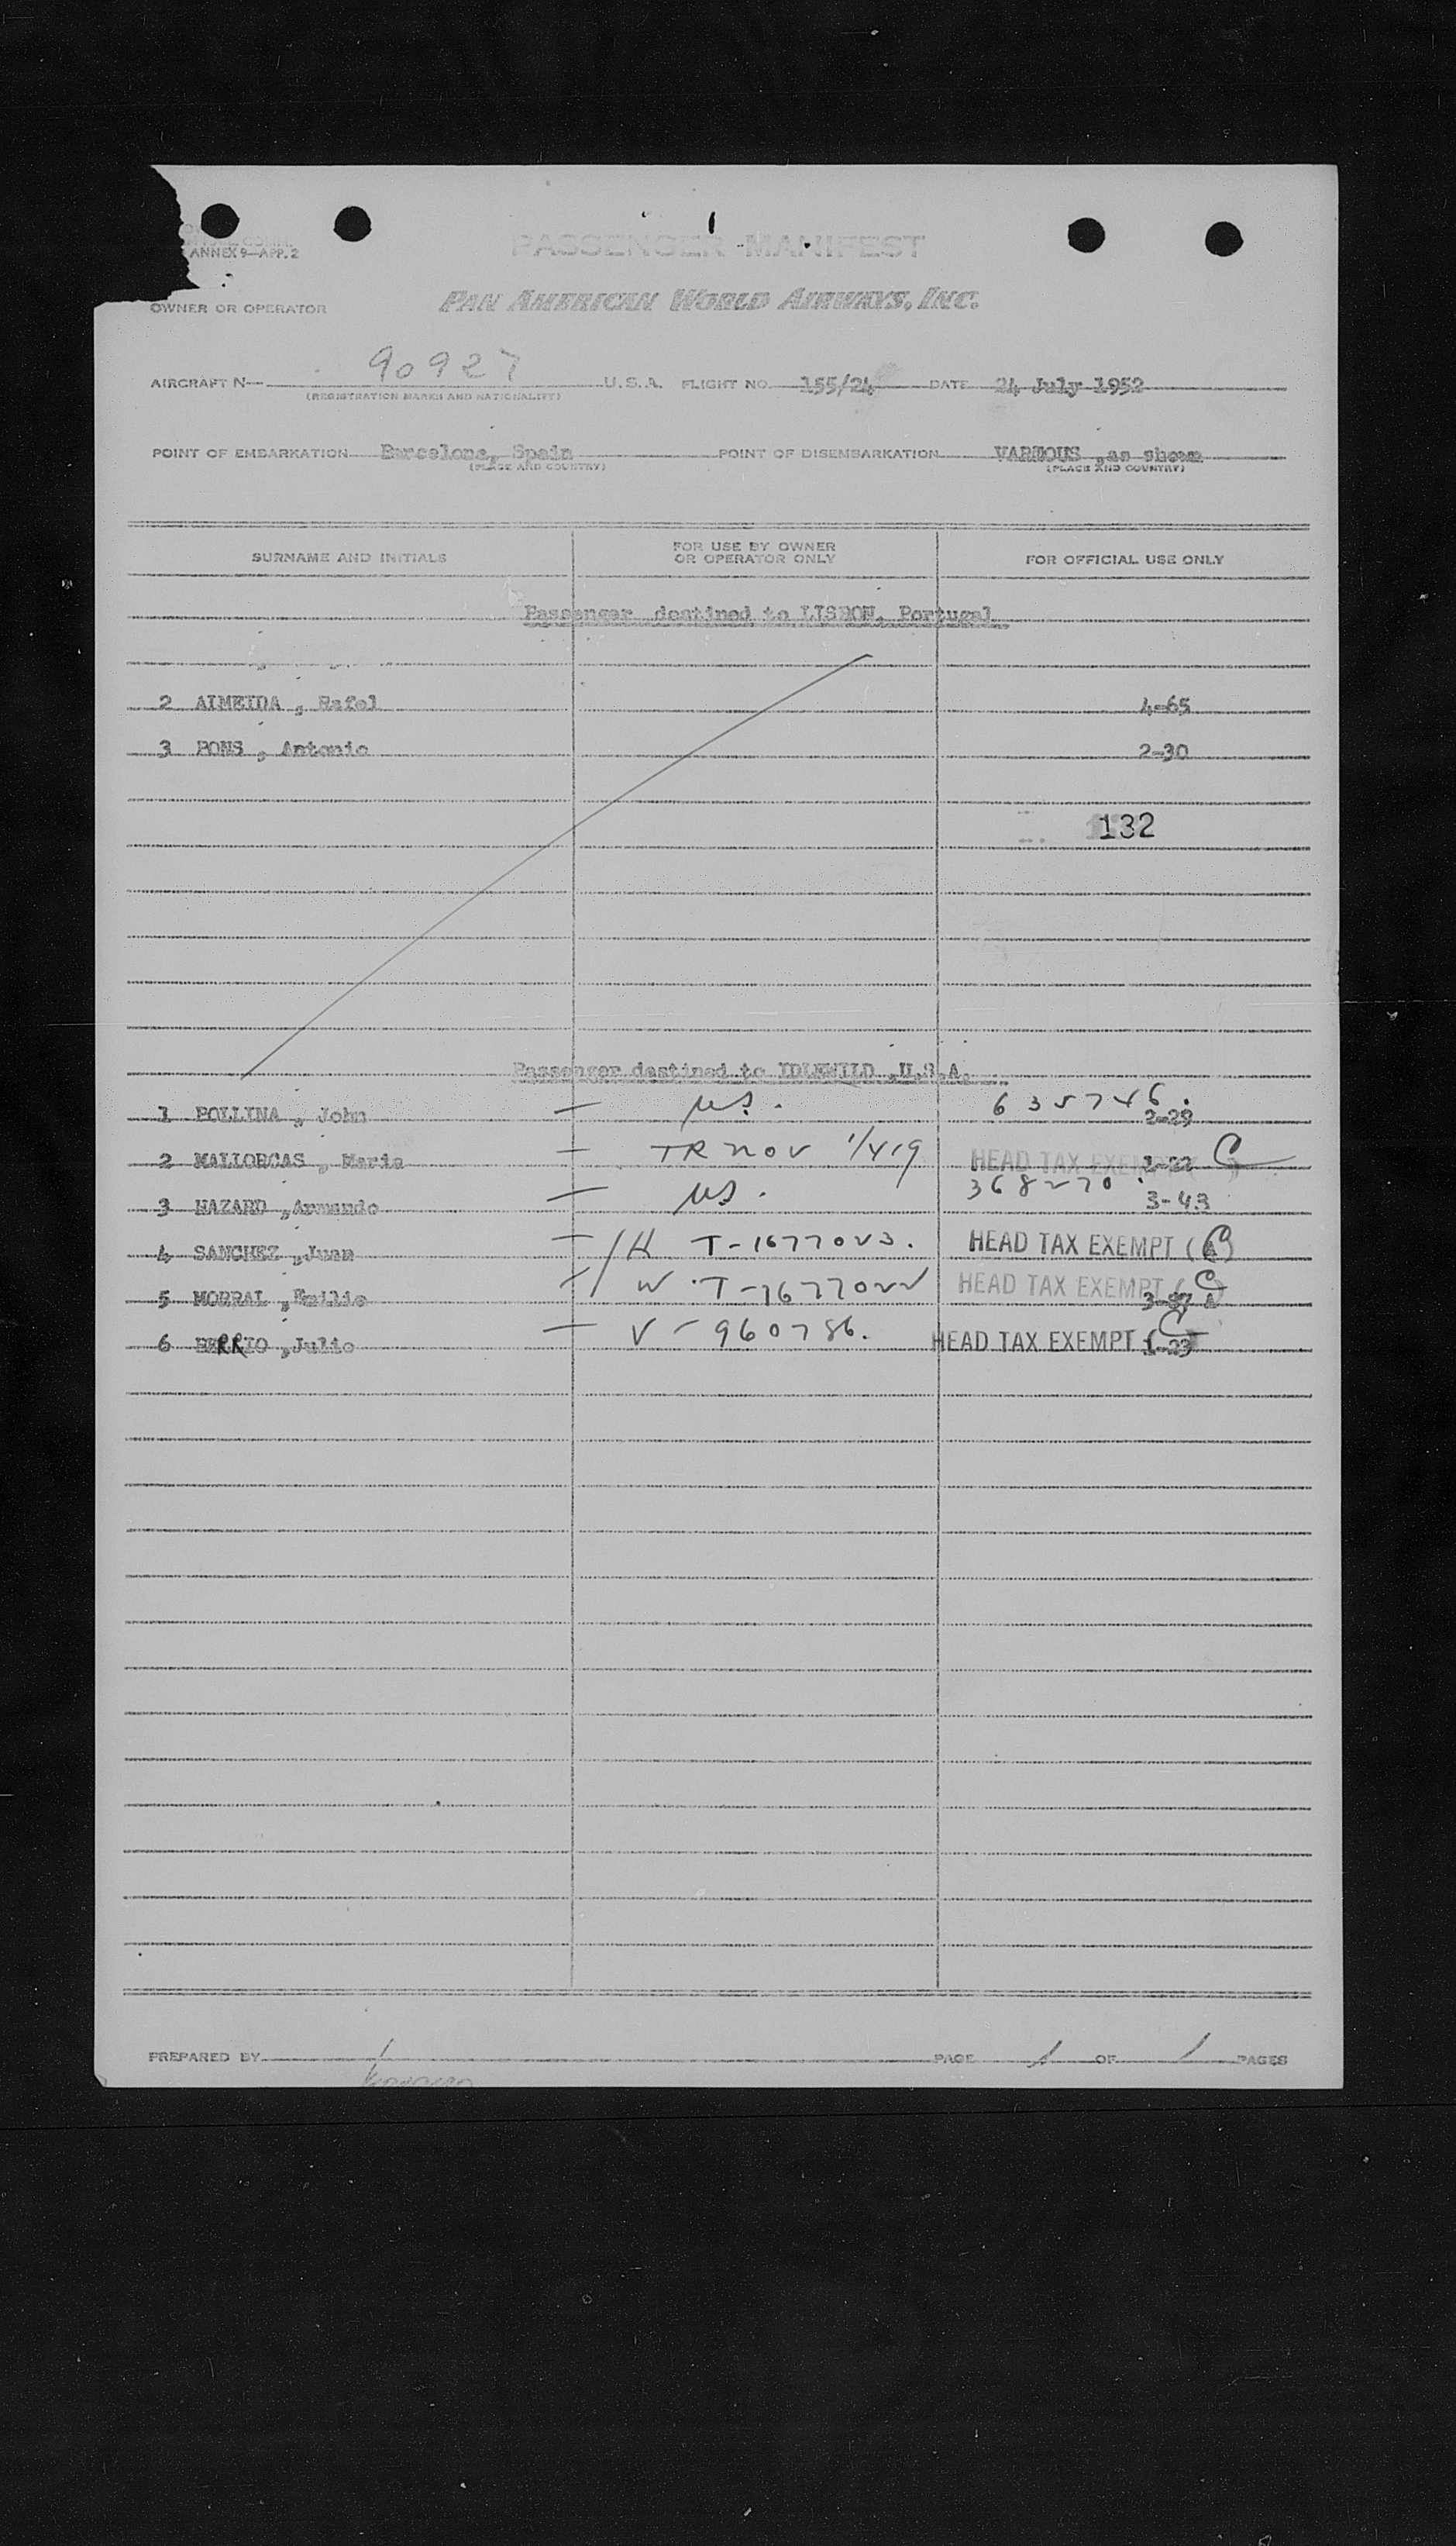 ANNEX 9—APP. 2
PASSENGER MANIFEST
OWNER OR OPERATOR PAN AMERICAN WORLD AIRWAYS, INC.
AIRCRAFT N— 90927 U.S.A. FLIGHT NO. 155/24 DATE 24 July 1952
(REGISTRATION MARKS AND NATIONALITY)
POINT OF EMBARKATION Barcelona, Spain POINT OF DISEMBARKATION VARIOUS ,as shown
(PLACE AND COUNTRY) (PLACE AND COUNTRY)
SURNAME AND INITIALS FOR USE BY OWNER OR OPERATOR ONLY FOR OFFICIAL USE ONLY
Passenger destined to LISBON, Portugal
2 ALMEIDA , Rafel 4-65
3 PONS , Antonio 2-30
132
Passenger destined to IDLEWILD ,U.S.A.
1 POLLINA , John — US. 635746. 2-29
2 MALLORCAS , Maria — TR NOV 1/419 HEAD TAX EXEMPT 1-22 C
3 HAZARD ,Armando — US. 368270. 3-43
4 SANCHEZ ,Juan — H T-1677023. HEAD TAX EXEMPT (C)
5 MORRAL ,Emilio — W T-1677022 HEAD TAX EXEMPT (C) 3-97 A
6 BERRIO ,Julio — V-960786. HEAD TAX EXEMPT (C) 1-23
PREPARED BY PAGE 1 OF 1 PAGES